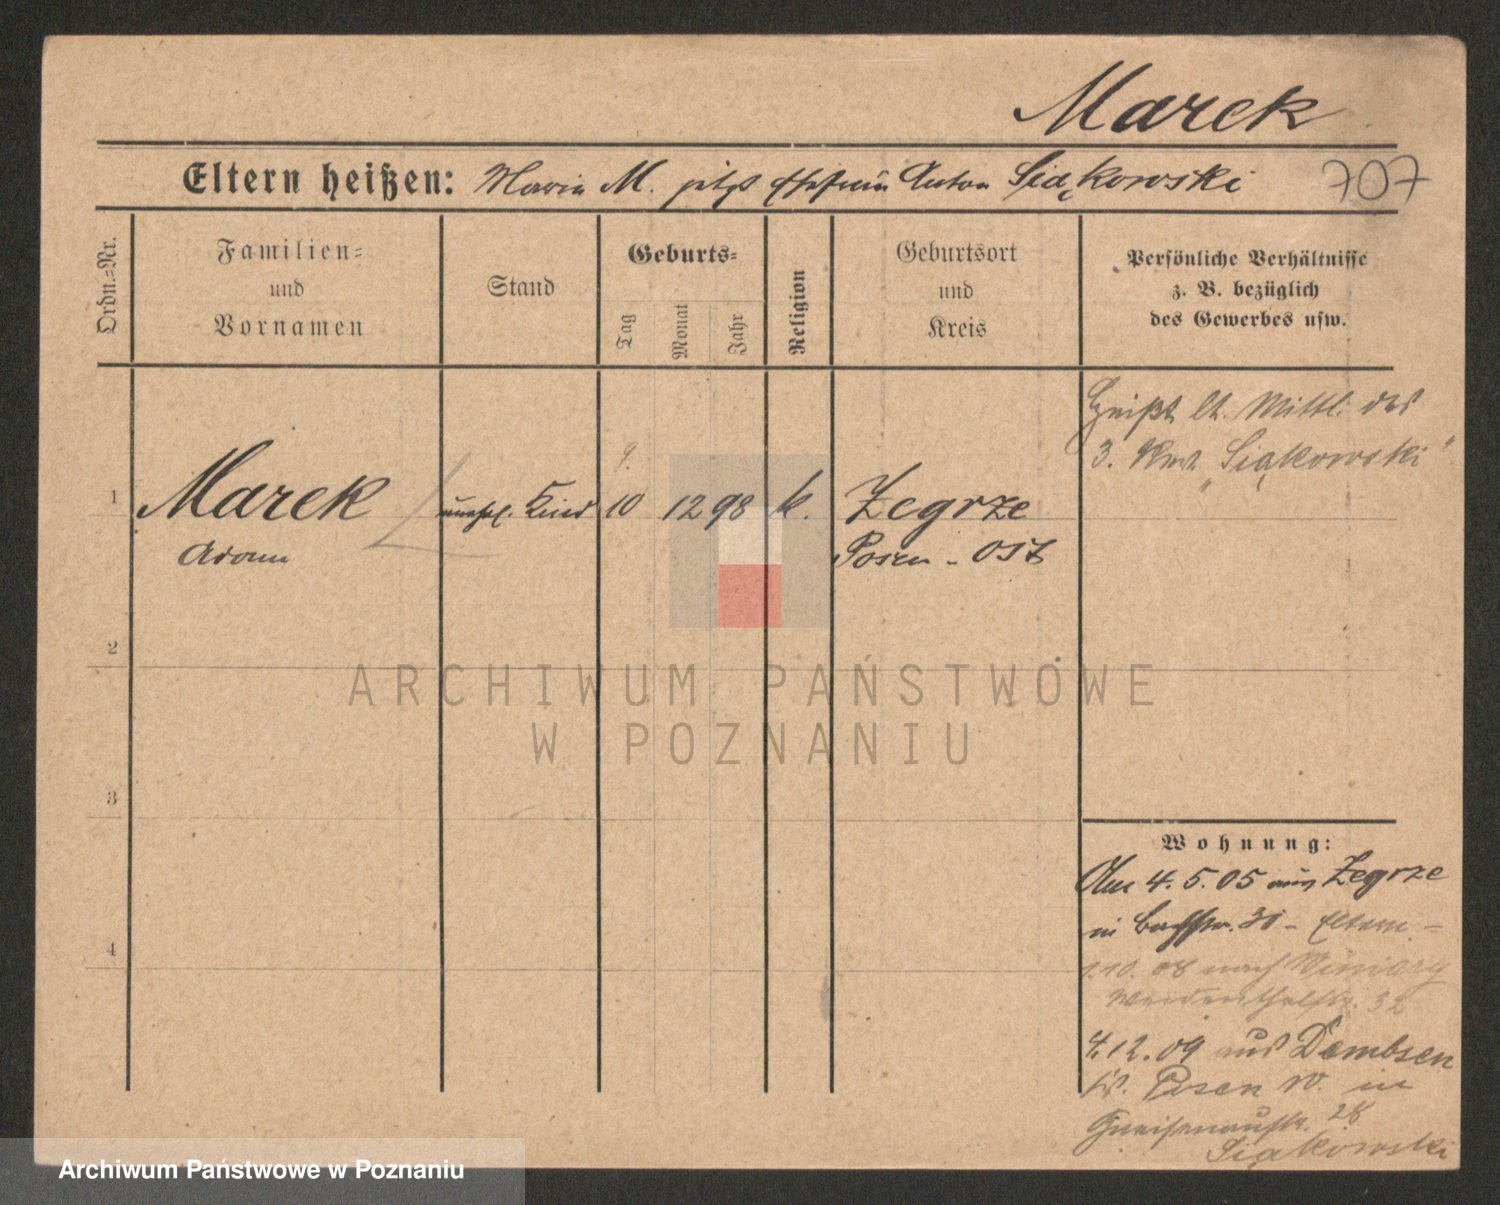 Marek
Eltern heißen: Maria M. jetzt Ehefrau Anton Siąkowski 707
Ordn.=Nr.
Familien=
und
Vornamen
Stand
Geburts=
Tag
Monat
Jahr
Religion
Geburtsort
und
Kreis
Persönliche Verhältnisse
z. B. bezüglich
des Gewerbes usw.
Heißt lt. Mittl. des
3. "Siąkowski"
9.
1 Marek unehel. Kind 10 12 98 k. Zegrze
Adam Posen - Ost
2
ARCHIWUM PAŃSTWOWE
W POZNANIU
3
4
Wohnung:
Am 4.5.05 aus Zegrze
in Bachstr. 31 - Eltern -
1.10.08 nach Winiary
32
4.12.09 aus Dembsen
Kr. Posen W. in
Gneisenaustr. 28
Siąkowski
Archiwum Państwowe w Poznaniu